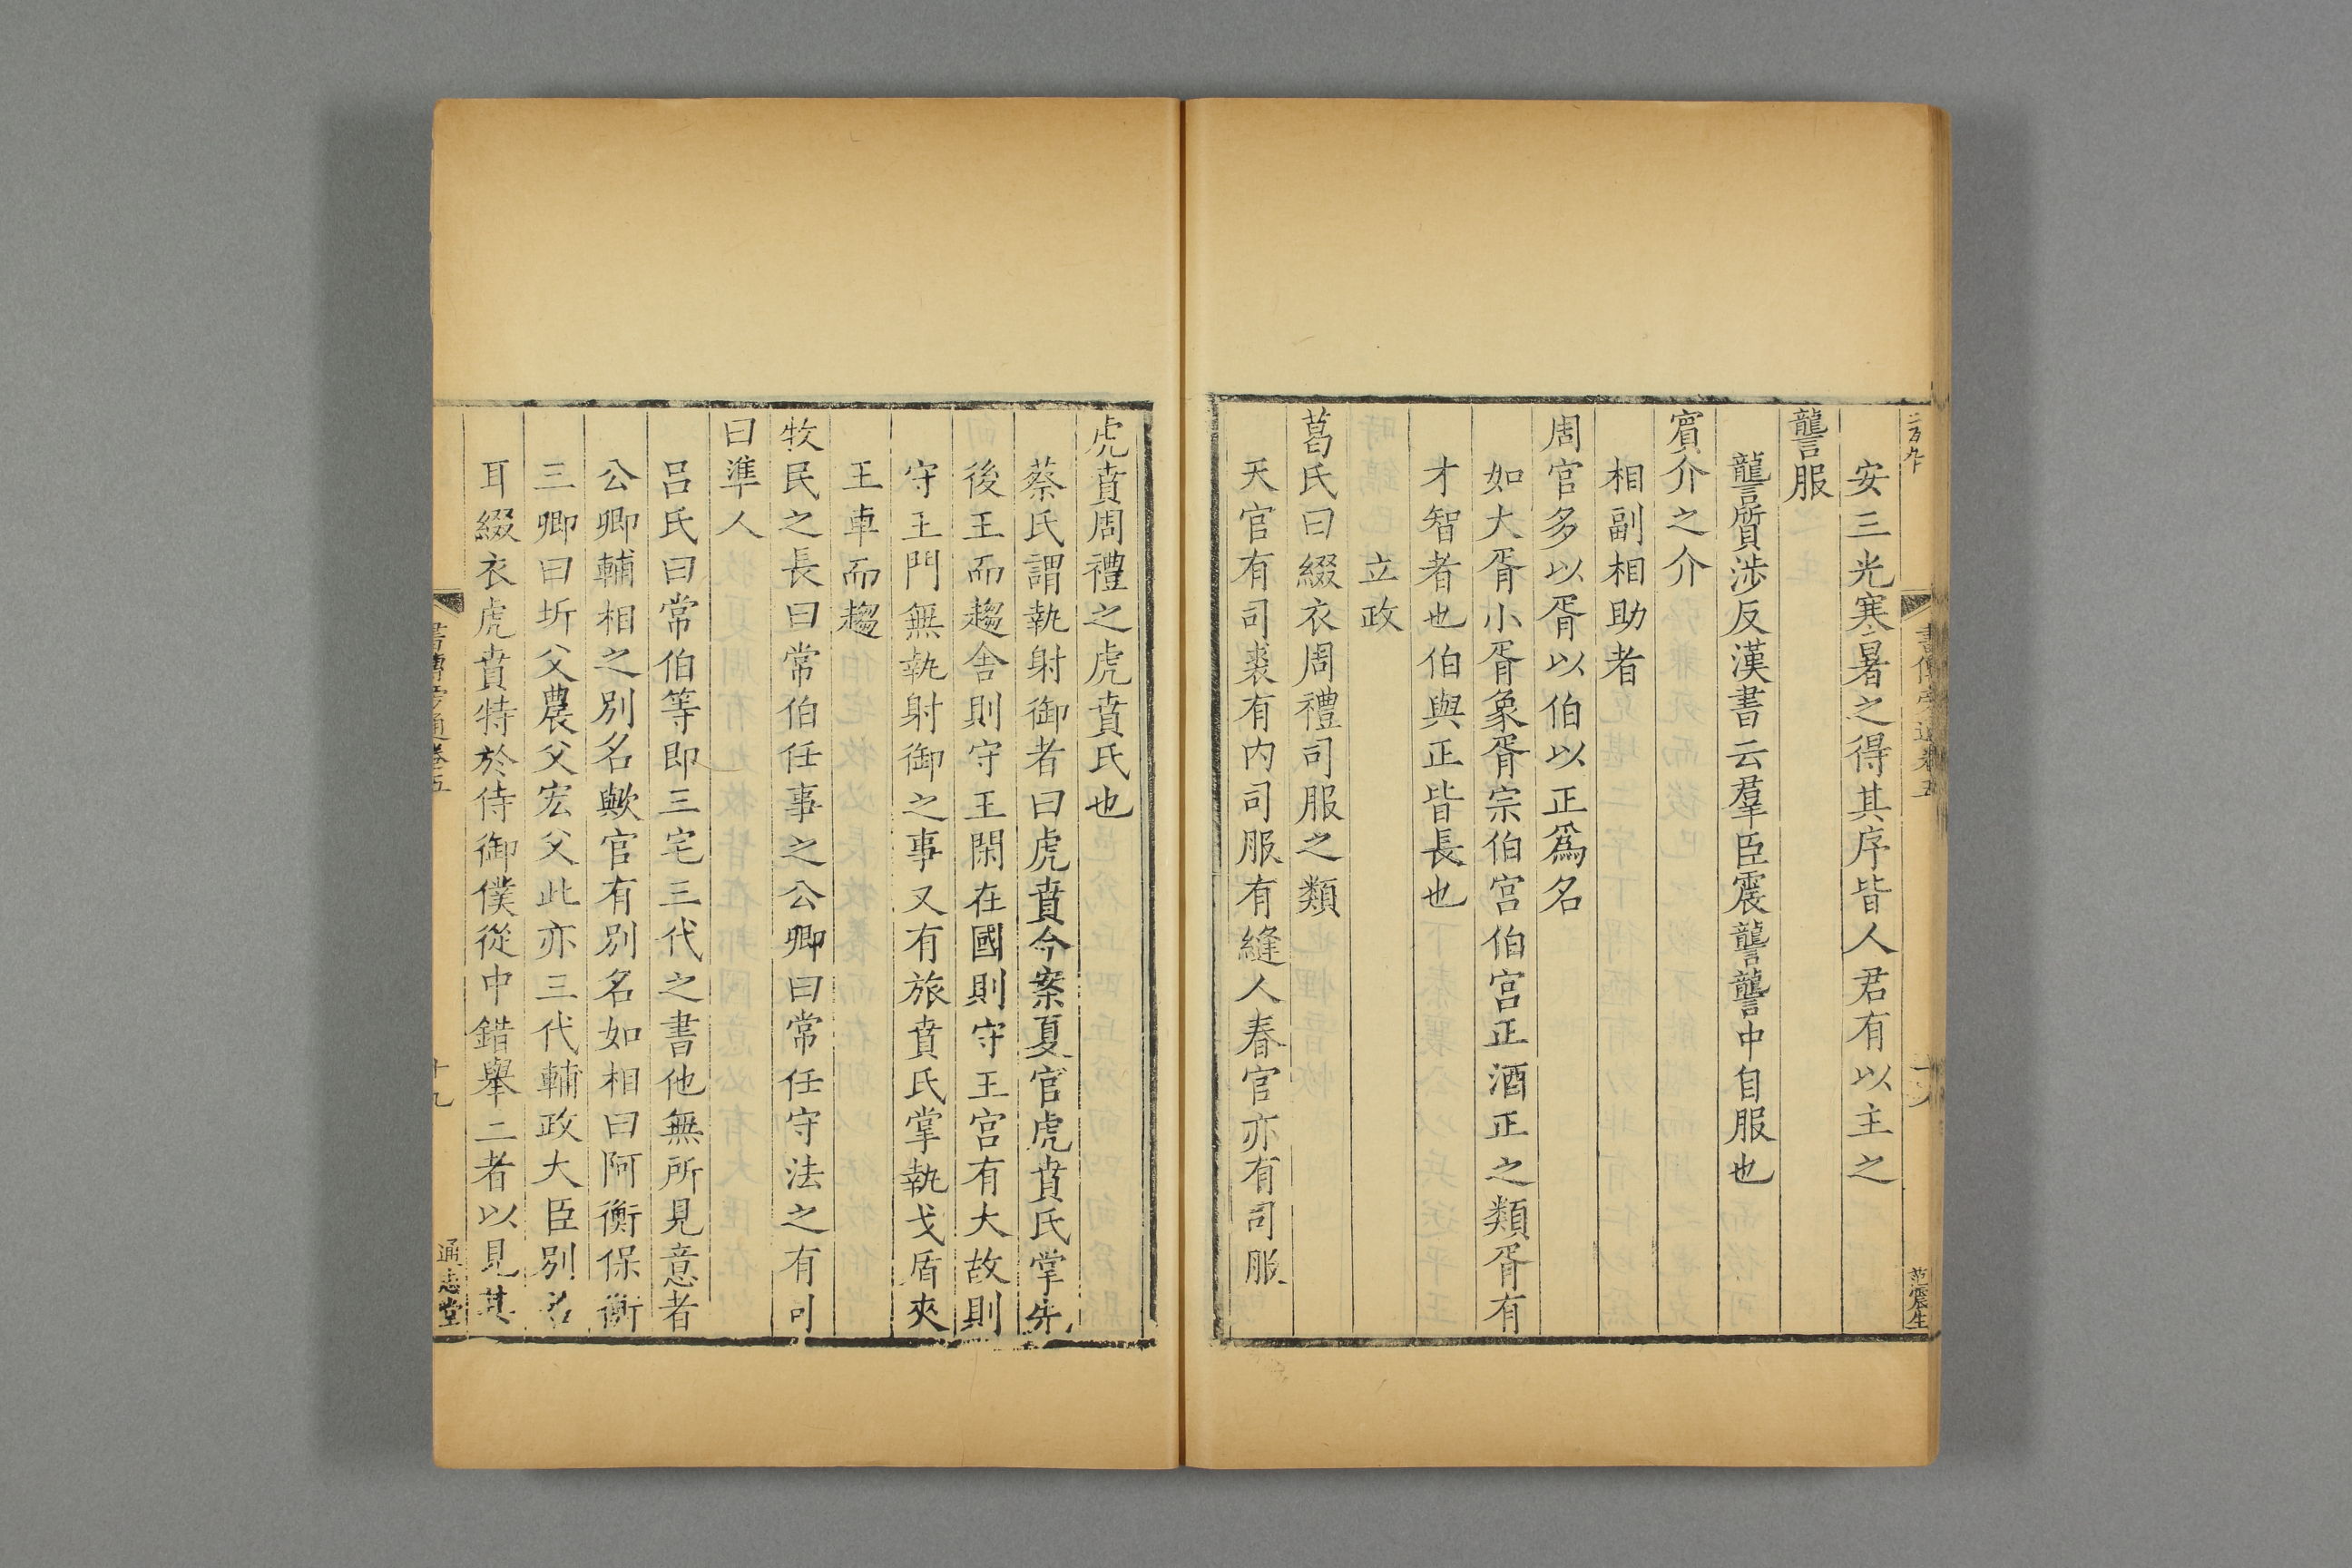 書傳旁通卷五
范震生
安三光寒暑之得其序皆人君有以主之
讋服
讋質涉反漢書云羣臣震讋讋中自服也
賔介之介
相副相助者
周官多以胥以伯以正爲名
如大胥小胥象胥宗伯宫伯宫正酒正之類胥有
才智者也伯與正皆長也
立政
葛氏曰綴衣周禮司服之類
天官有司裘有内司服有縫人春官亦有司服
虎賁周禮之虎賁氏也
蔡氏謂執射御者曰虎賁今案夏官虎賁氏掌先
後王而趨舍則守王閑在國則守王宫有大故則
守王門無執射御之事又有旅賁氏掌執戈盾夾
王車而趨
牧民之長曰常伯任事之公卿曰常任守法之有司
曰準人
吕氏曰常伯等即三宅三代之書他無所見意者
公卿輔相之别名歟官有别名如相曰阿衡保衡
三卿曰圻父農父宏父此亦三代輔政大臣别名
耳綴衣虎賁特於侍御僕從中錯舉二者以見其
書傳旁通卷五
十九
通志堂